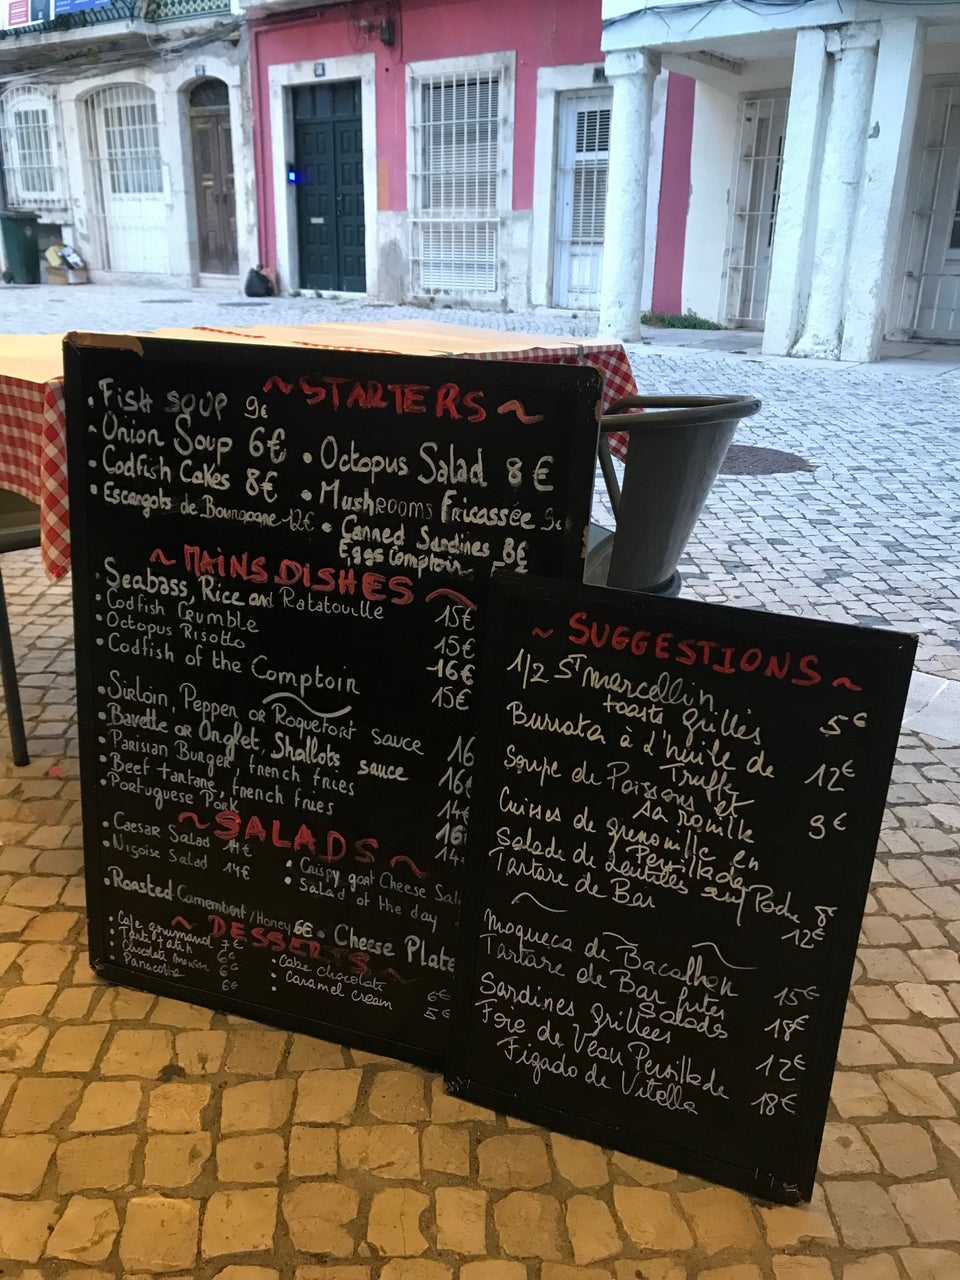 ~STARTERS~
• Fish SOUP 9€
• Onion Soup 6€
• Codfish Cakes 8€
• Escargots de Bourgogne 12€
• Octopus Salad 8€
• Mushrooms Fricassée 9€
• Canned Sardines 8€
Eggs Comptoir
~MAINS DISHES~
• Seabass, Rice and Ratatouille 15€
• Codfish Crumble 15€
• Octopus Risotto 16€
• Codfish of the Comptoir 15€
• Sirloin, Pepper or Roquefort sauce 16
• Bavette or Onglet, Shallots sauce 16€
• Parisian Burger, french fries 14€
• Beef tartare, french fries 16
• Portuguese Pork 14
~SALADS~
• Caesar Salad 14€
• Niçoise Salad 14€
• Crispy goat Cheese Sal
• Salad of the day
• Roasted Camembert/Honey 6€
• Cheese Plate
~DESSERTS~
• Cafe gourmand 7€
• Tarte tatin 6€
• Chocolate mousse 6€
• Panacotta 6€
• Cake chocolate 6€
• Caramel cream 5€
~SUGGESTIONS~
1/2 St marcellin
toasts grillés 5€
Burrata à l'huile de
Truffe 12€
Soupe de Poissons et
sa rouille 9€
Cuisses de grenouille en
Persillade
Salade de Lentilles Poche 8€
Tartare de Bar 12€
~
Moqueca de Bacalhau 15€
Tartare de Bar frites
Salades 18€
Sardines grillées 12€
Foie de Veau Persillade 18€
Figado de Vitella